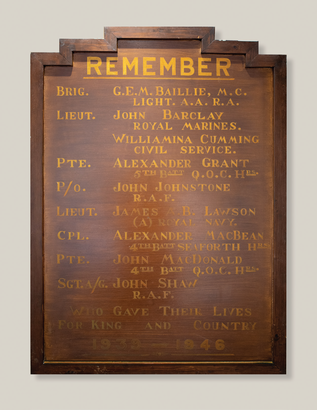 REMEMBER
BRIG. G.E.M. BAILLIE, M.C.
LIGHT. A.A. R.A.
LIEUT. JOHN BARCLAY
ROYAL MARINES.
WILLIAMINA CUMMING
CIVIL SERVICE.
PTE. ALEXANDER GRANT
5TH BATT Q.O.C. HRS
P/O. JOHN JOHNSTONE
R.A.F.
LIEUT. JAMES B. LAWSON
(A) ROYAL NAVY.
CPL. ALEXANDER MACBEAN
4TH BATT SEAFORTH HRS
PTE. JOHN MACDONALD
4TH BATT Q.O.C. HRS
SGT.A/G. JOHN SHAW
R.A.F.
WHO GAVE THEIR LIVES
FOR KING AND COUNTRY
1946